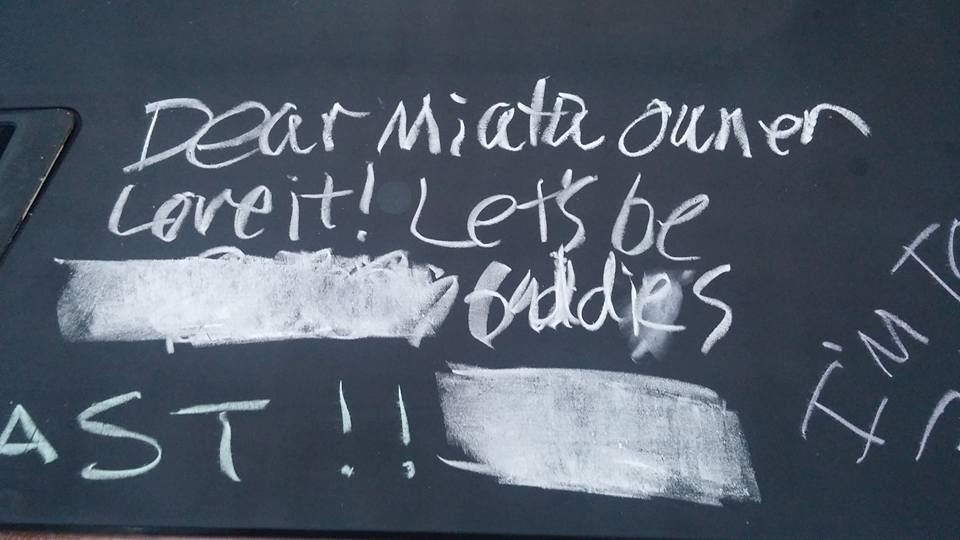 Dear Miata owner
Love it! Let's be
buddies
AST !!
I'M